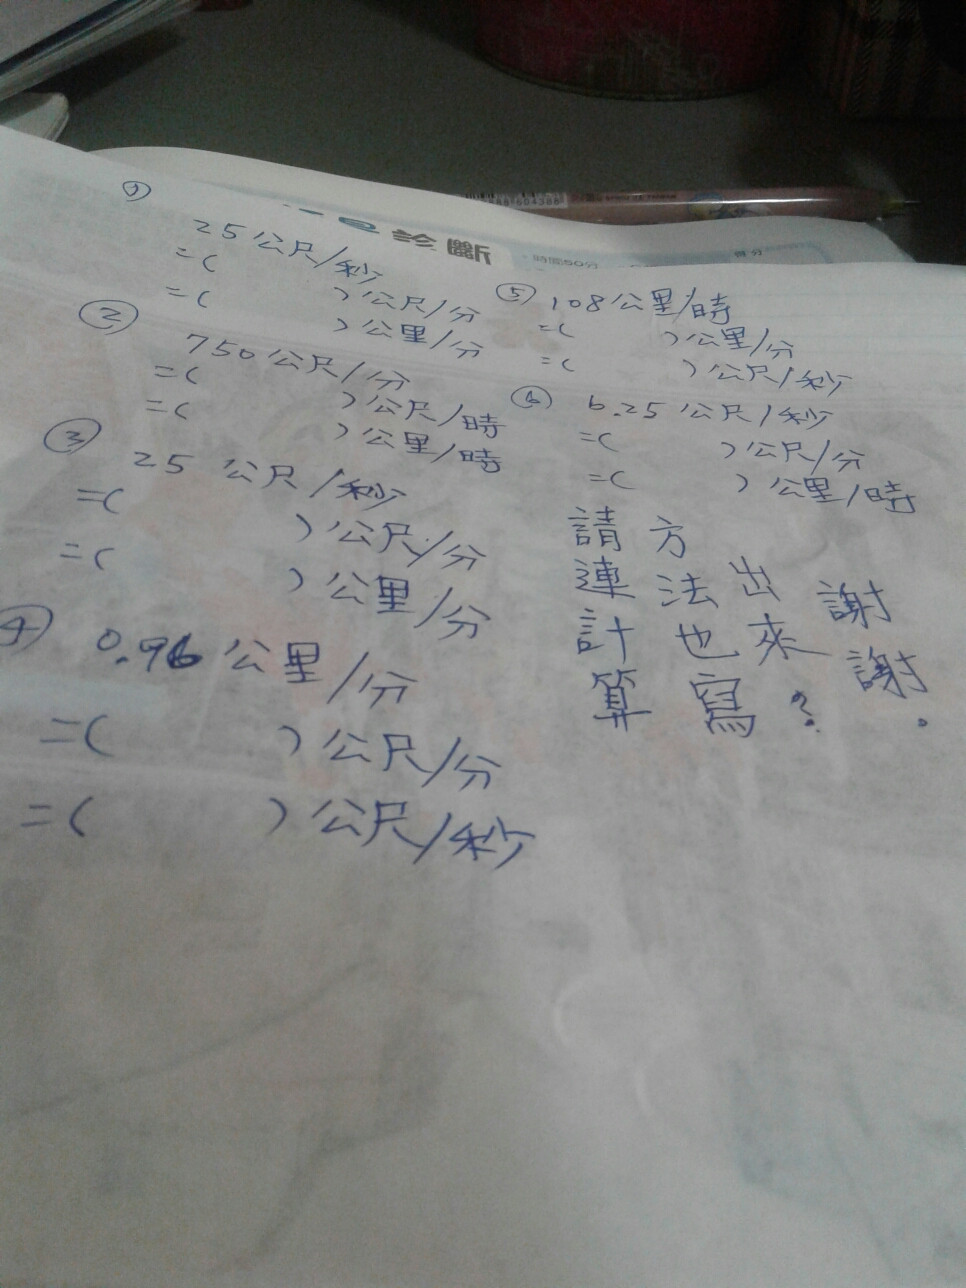 ①
25公尺/秒
=(    )公尺/分
=(    )公里/分
②
750公尺/分
=(    )公尺/時
=(    )公里/時
③
25公尺/秒
=(    )公尺/分
=(    )公里/分
④
0.96公里/分
=(    )公尺/分
=(    )公尺/秒
⑤ 108公里/時
=(    )公里/分
=(    )公尺/秒
⑥ 6.25公尺/秒
=(    )公尺/分
=(    )公里/時
請連計算
方法也寫
出來?
謝謝。
時間50分
得分